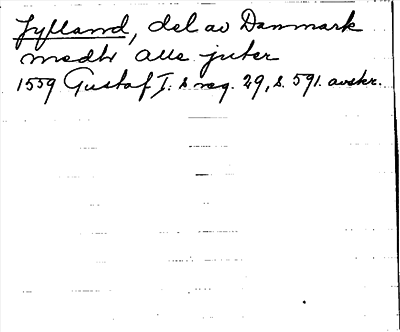 Jylland, del av Danmark
medh alle juter
1559 Gustaf I:s reg. 29, s. 591. avskr.